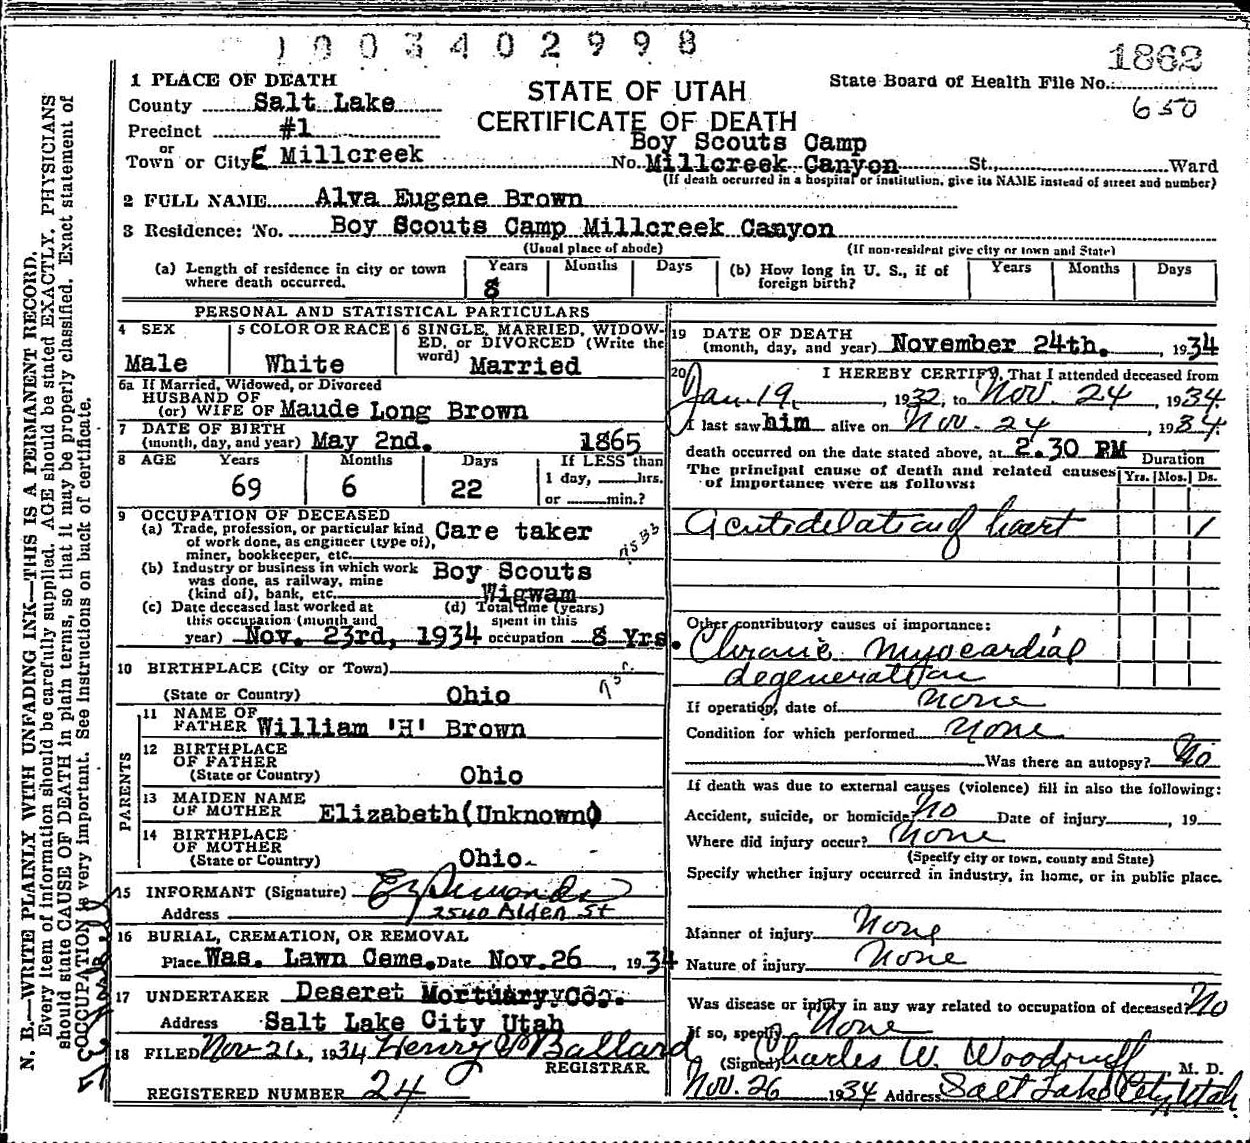 1003402998
1862
1 PLACE OF DEATH
STATE OF UTAH
State Board of Health File No.
650
County Salt Lake
CERTIFICATE OF DEATH
Precinct #1
Boy Scouts Camp
Town or or City E Millcreek No. Millcreek Canyon St., Ward
(If death occurred in a hospital or institution, give its NAME instead of street and number)
2 FULL NAME Alva Eugene Brown
3 Residence: No. Boy Scouts Camp Millcreek Canyon
(Usual place of abode) (If non-resident give city or town and State)
(a) Length of residence in city or town where death occurred. Years 8 Months Days (b) How long in U. S., if of foreign birth? Years Months Days
PERSONAL AND STATISTICAL PARTICULARS
4 SEX Male
5 COLOR OR RACE White
6 SINGLE, MARRIED, WIDOWED, or DIVORCED (Write the word) Married
6a If Married, Widowed, or Divorced
HUSBAND OF
(or) WIFE OF Maude Long Brown
7 DATE OF BIRTH
(month, day, and year) May 2nd. 1865
8 AGE Years Months Days If LESS than
69 6 22 1 day, hrs.
or min.?
9 OCCUPATION OF DECEASED
(a) Trade, profession, or particular kind of work done, as engineer (type of), miner, bookkeeper, etc. Care taker
(b) Industry or business in which work was done, as railway, mine (kind of), bank, etc. Boy Scouts Wigwam
(c) Date deceased last worked at this occupation (month and year) Nov. 23rd, 1934
(d) Total time (years) spent in this occupation 8 Yrs.
10 BIRTHPLACE (City or Town)
(State or Country) Ohio
PARENTS
11 NAME OF FATHER William 'H' Brown
12 BIRTHPLACE OF FATHER
(State or Country) Ohio
13 MAIDEN NAME OF MOTHER Elizabeth (Unknown)
14 BIRTHPLACE OF MOTHER
(State or Country) Ohio.
15 INFORMANT (Signature)
Address 2540 Alden St
16 BURIAL, CREMATION, OR REMOVAL
Place Was. Lawn Ceme. Date Nov. 26, 1934
17 UNDERTAKER Deseret Mortuary Co.
Address Salt Lake City Utah
18 FILED Nov 26, 1934 Henry Ballard
REGISTRAR
REGISTERED NUMBER 24
19 DATE OF DEATH
(month, day, and year) November 24th., 1934
20 I HEREBY CERTIFY, That I attended deceased from
Jan. 19, 1932, to Nov. 24, 1934.
I last saw him alive on Nov. 24, 1934,
death occurred on the date stated above, at 2.30 PM
The principal cause of death and related causes of importance were as follows:
Duration
Yrs. Mos. Ds.
Acute dilation of heart 1
Other contributory causes of importance:
Chronic myocardial
degeneration
If operation, date of none
Condition for which performed none
Was there an autopsy? No
If death was due to external causes (violence) fill in also the following:
Accident, suicide, or homicide? No Date of injury , 19
Where did injury occur? None
(Specify city or town, county and State)
Specify whether injury occurred in industry, in home, or in public place.
Manner of injury None
Nature of injury None
Was disease or injury in any way related to occupation of deceased? No
If so, specify None
(Signed) Charles W. Woodruff M. D.
Nov. 26 1934 Address Salt Lake City, Utah.
N. B.—WRITE PLAINLY WITH UNFADING INK—THIS IS A PERMANENT RECORD.
Every item of information should be carefully supplied. AGE should be stated EXACTLY. PHYSICIANS
should state CAUSE OF DEATH in plain terms, so that it may be properly classified. Exact statement of
OCCUPATION is very important. See instructions on back of certificate.